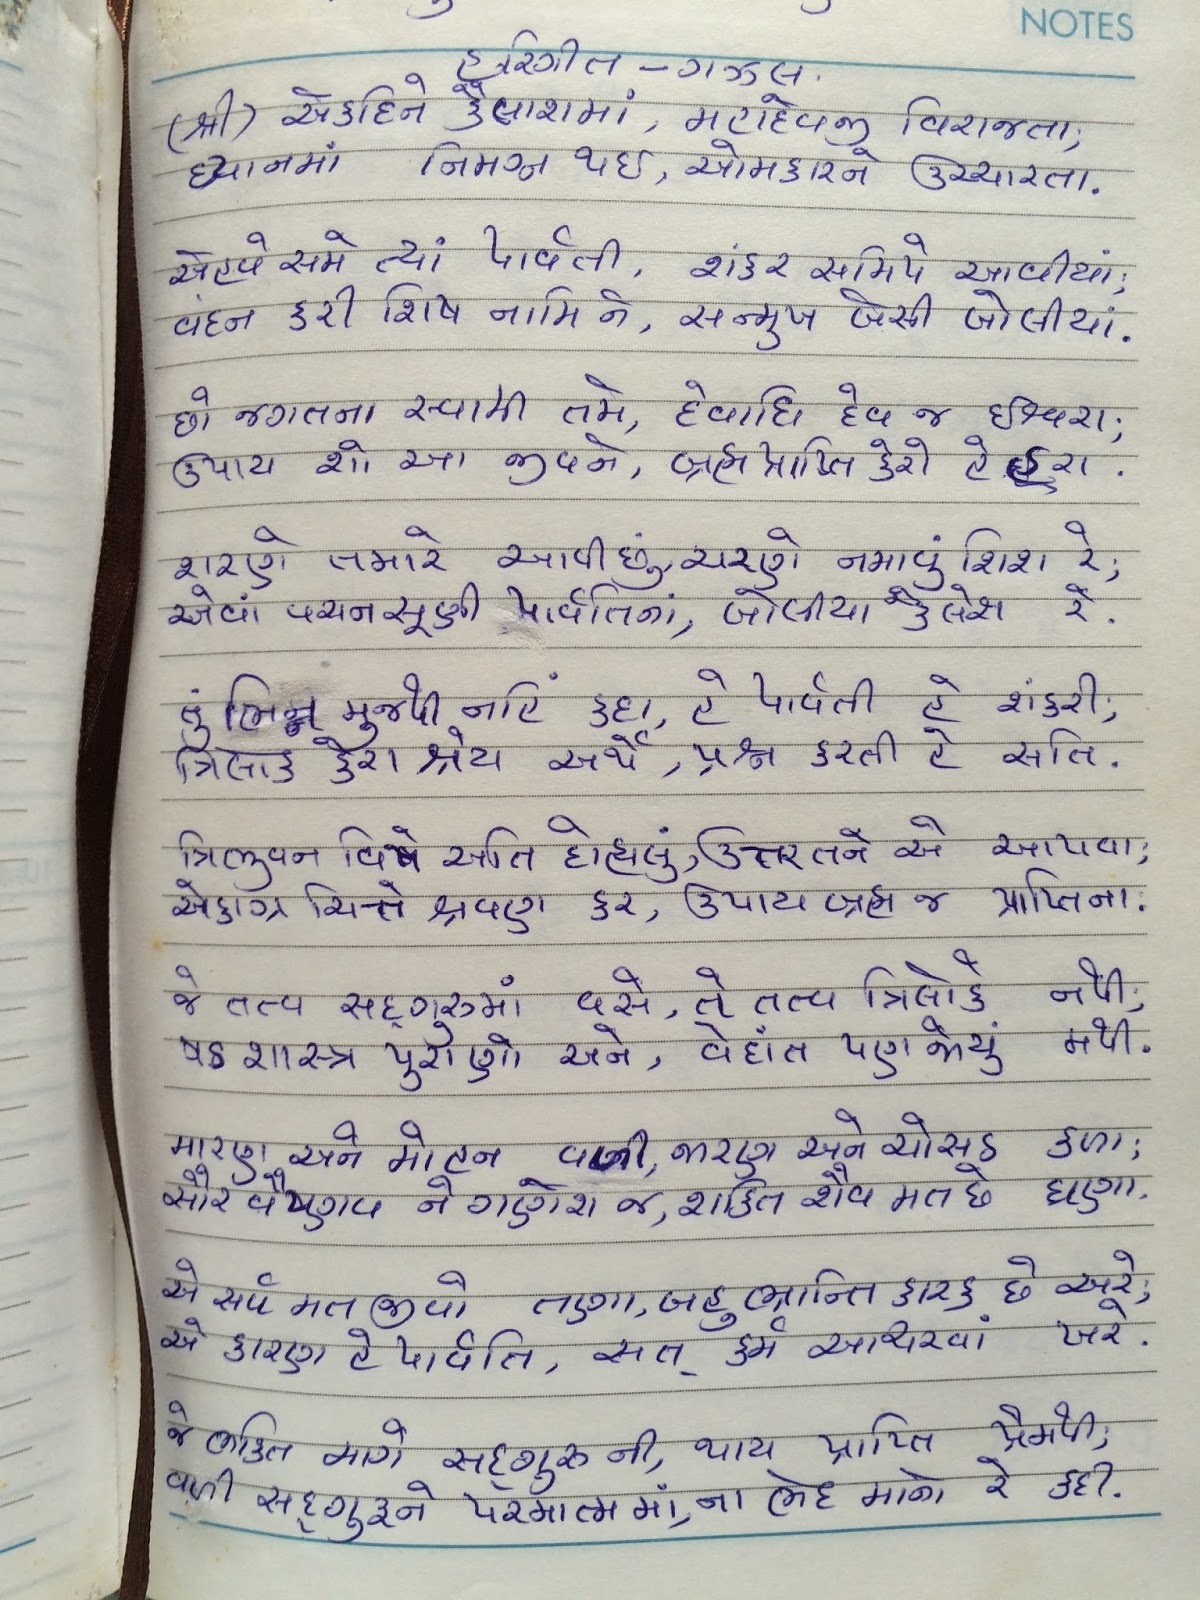 NOTES
હરિગીત - ગઝલ.
(શ્રી) એકદિને કૈલાશમાં, મહાદેવજી વિરાજતા;
ધ્યાનમાં નિમગ્ન થઈ, ઓમકારને ઉચ્ચારતા.
એહવે સમે ત્યાં પાર્વતી, શંકર સમિપે આવીયાં;
વંદન કરી શિષ નામિ ને, સન્મુખ બેસી બોલીયાં.
છો જગતના સ્વામી તમે, દેવાધિ દેવ જ ઈશ્વરા;
ઉપાય શો આ જીવને, બ્રહ્મ પ્રાપ્તિ કેરો હે હરા.
શરણે તમારે આવી છું, ચરણે નમાવું શિશ રે;
એવાં વચન સૂણી પાર્વતિનાં, બોલીયા કૈલેશ રે.
તું ભિન્ન મુજથી નહિં કદા, હે પાર્વતી હે શંકરી;
ત્રિલોક કેરા શ્રેય અર્થે, પ્રશ્ન કરતી હે સતિ.
ત્રિભુવન વિષે અતિ દોહ્યલું, ઉત્તર તને એ આપવા;
એકાગ્ર ચિત્તે શ્રવણ કર, ઉપાય બ્રહ્મ જ પ્રાપ્તિના.
જે તત્વ સદ્ગુરુમાં વસે, તે તત્વ ત્રિલોકે નથી;
ષડ શાસ્ત્ર પુરાણો અને, વેદાંત પણ જોયું મથી.
મારણ અને મોહન વળી, જારણ અને ચોસઠ કળા;
સૌર વૈષ્ણવ ને ગણેશ જ, શક્તિ શૈવ મત છે ઘણા.
એ સર્વ મત જીવો તણા, બહુ ભ્રાન્તિ કારક છે અરે;
એ કારણ હે પાર્વતિ, સત્ કર્મ આચરવાં ખરે.
જે ભક્તિ માર્ગે સદ્ગુરુ ની, થાય પ્રાપ્તિ પ્રેમથી;
વળી સદ્ગુરૂને પરમાત્મ માં, ના ભેદ માનો રે કદી.